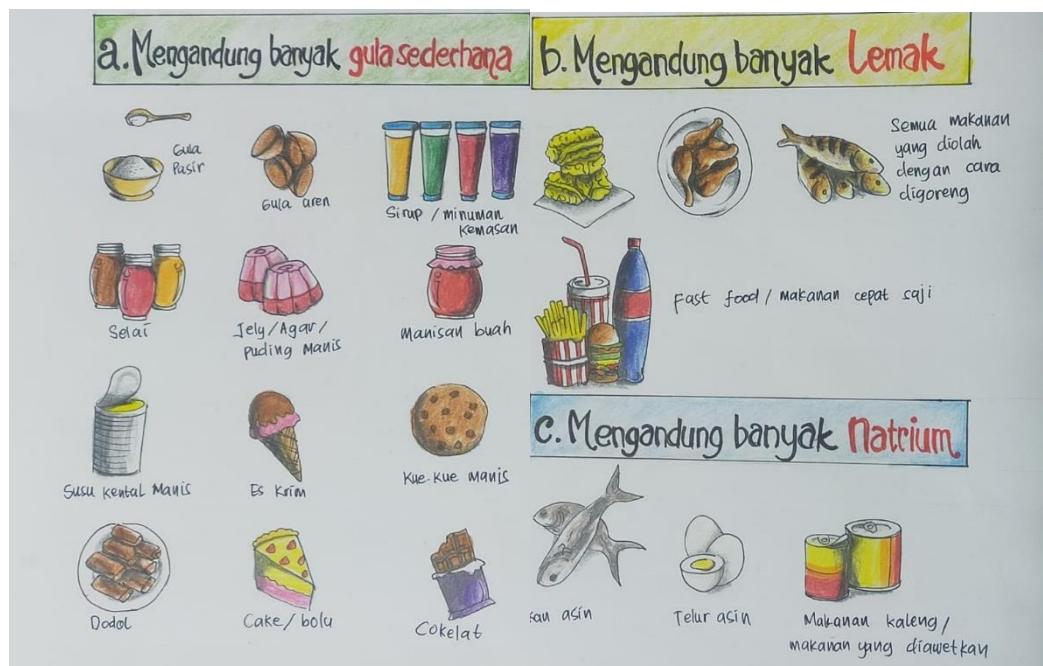 a. Mengandung banyak gula sederhana
Gula
Pasir
Gula aren
Sirup / minuman
kemasan
Selai
Jely/Agar/
puding Manis
Manisan buah
Susu kental Manis
Es krim
Kue-kue Manis
Dodol
Cake/bolu
Cokelat
b. Mengandung banyak Lemak
Semua makanan
yang diolah
dengan cara
digoreng
Fast food / makanan cepat saji
c. Mengandung banyak Natrium
asin
Telur asin
Makanan kaleng/
makanan yang diawetkan